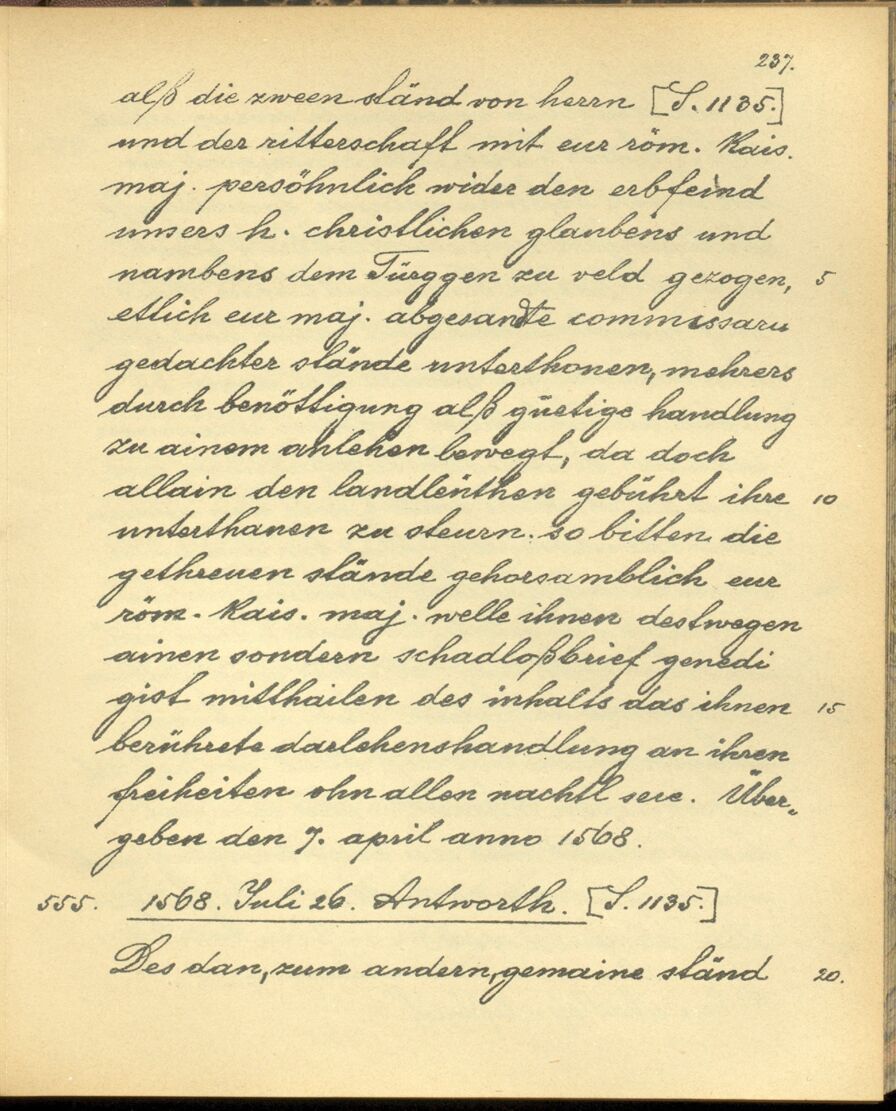 237.
alß die zween ständ von herrn [S. 1135.]
und der ritterschaft mit eur röm. Kais.
maj. persöhnlich wider den erbfeind
unsers h. christlichen glaubens und
nambens dem Türggen zu veld gezogen, 5
etlich eur maj. abgesandte commissarii
gedachter stände unterthonen, mehrers
durch benöttigung alß güetige handlung
zu ainem anlehen bewegt, da doch
allain den landleüthen gebührt ihre 10
unterthanen zu steurn. so bitten die
gethreuen stände gehorsamblich eur
röm. Kais. maj. welle ihnen destwegen
ainen sondern schadloßbrief genedi
gist mitthailen des inhalts das ihnen 15
berührete darlehenshandlung an ihren
freiheiten ohn allen nachtl seie. Über-
geben den 7. april anno 1568.
555. 1568. Juli 26. Antworth. [S. 1135.]
Des dan, zum andern, gemaine ständ 20.